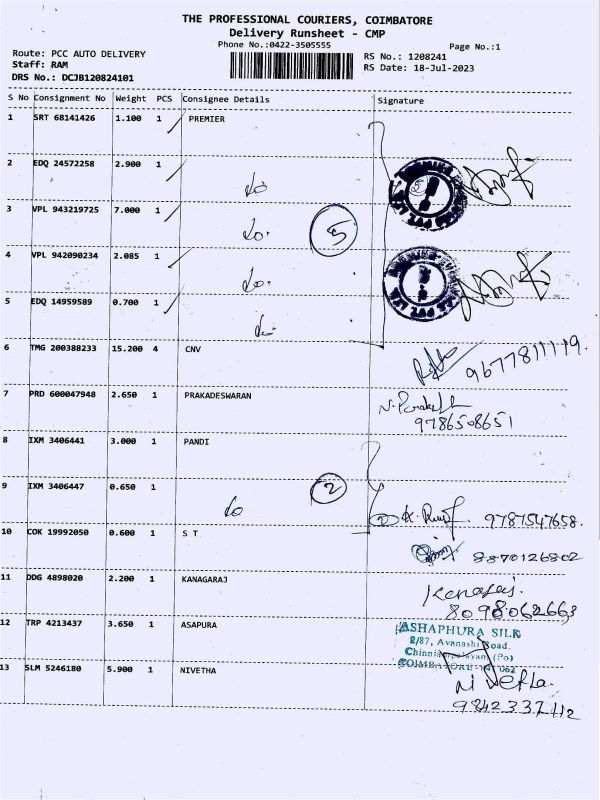 THE PROFESSIONAL COURIERS, COIMBATORE
Delivery Runsheet - CMP
Phone No.:0422-3505555
Page No.:1
Route: PCC AUTO DELIVERY
RS No.: 1208241
Staff: RAM
RS Date: 18-Jul-2023
DRS No.: DCJB120824101
S No Consignment No Weight PCS Consignee Details Signature
1 SRT 68141426 1.100 1 PREMIER
2 EDQ 24572258 2.900 1
do
3 VPL 943219725 7.000 1
do. 5
4 VPL 942090234 2.085 1
do.
5 EDQ 14959589 0.700 1
do
6 TMG 200388233 15.200 4 CNV 9677811119.
7 PRD 600047948 2.650 1 PRAKADESWARAN
9786508651
8 IXM 3406441 3.000 1 PANDI
9 IXM 3406447 0.650 1 2
do 9787547658.
10 COK 19992050 0.600 1 S T
8870126802
11 DDG 4898020 2.200 1 KANAGARAJ
8098062663
12 TRP 4213437 3.650 1 ASAPURA
ASHAPHURA SILK
2/87, Avanashi Road.
(Po)
COIMBATORE
13 SLM 5246180 5.900 1 NIVETHA
Nivetha.
9842337112